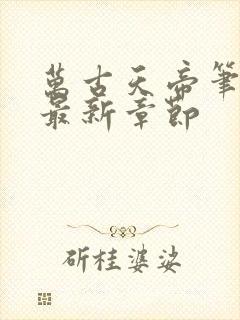 萬古天帝筆
最新章節
斫桂婆娑